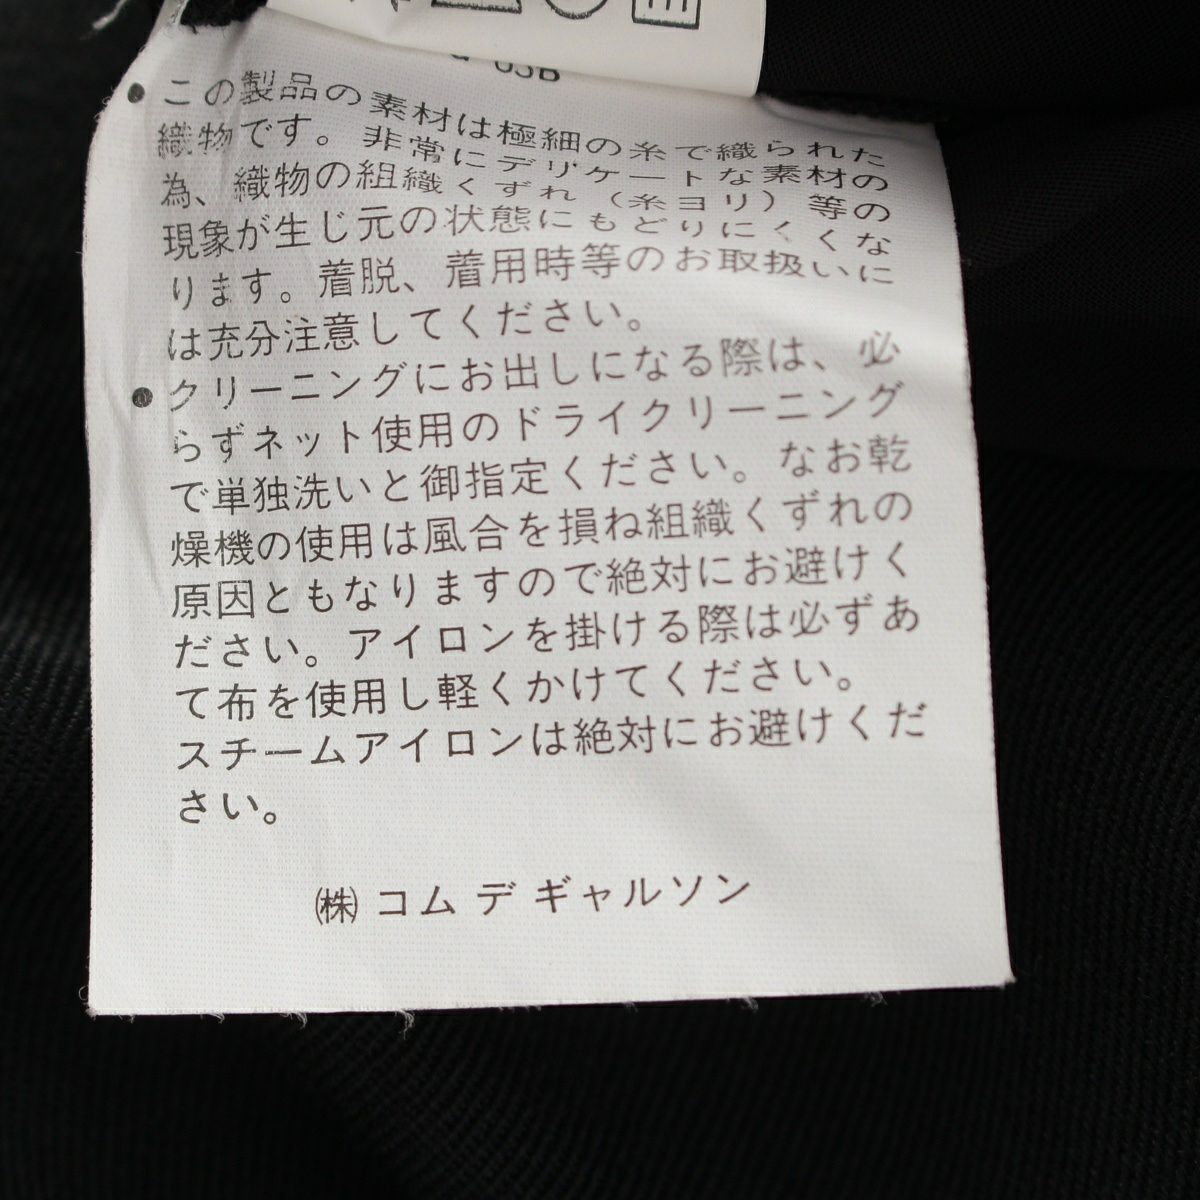 03B
• この製品の素材は極細の糸で織られた
織物です。非常にデリケートな素材の
為、織物の組織くずれ（糸ヨリ）等の
現象が生じ元の状態にもどりにくくな
ります。着脱、着用時等のお取扱いに
は充分注意してください。
• クリーニングにお出しになる際は、必
らずネット使用のドライクリーニング
で単独洗いと御指定ください。なお乾
燥機の使用は風合を損ね組織くずれの
原因ともなりますので絶対にお避けく
ださい。アイロンを掛ける際は必ずあ
て布を使用し軽くかけてください。
スチームアイロンは絶対にお避けくだ
さい。
㈱ コム デ ギャルソン